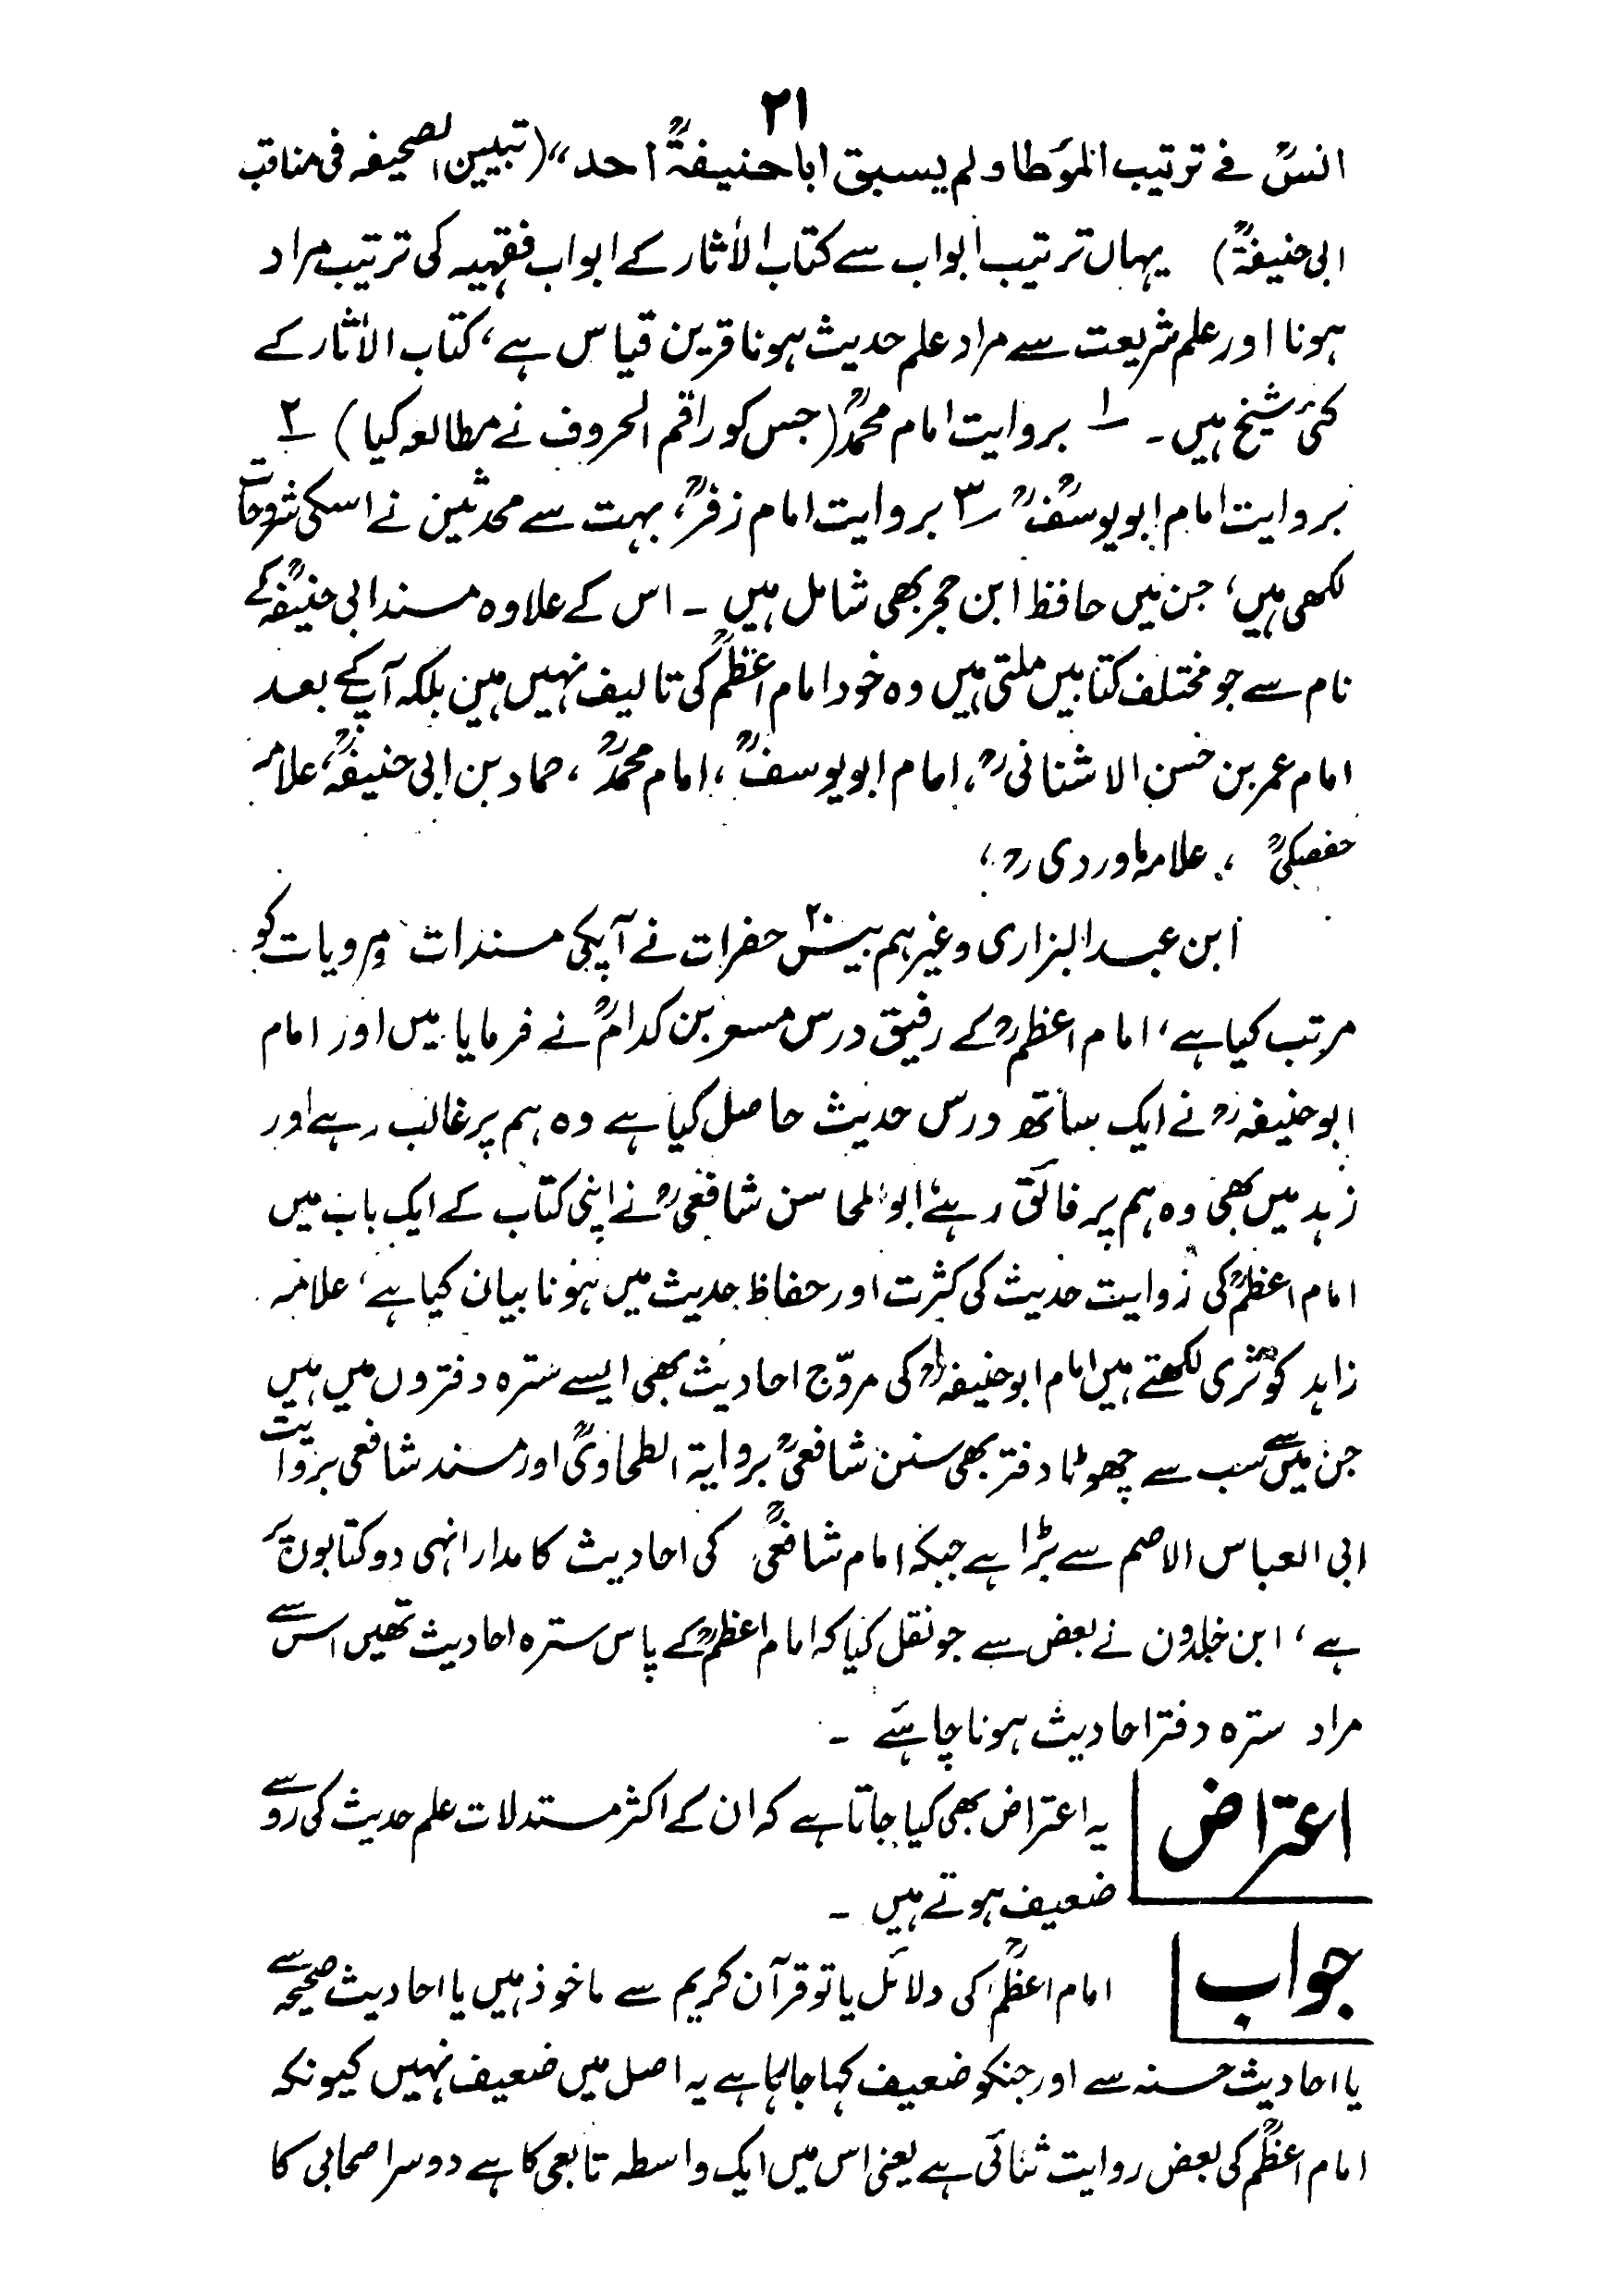 ۲۱
انسؒ فے ترتیب المؤطا ولم یسبق ابا حنیفۃؒ احد“ (تبیین الصحیفہ فی مناقب
ابی حنیفۃؒ) یہاں ترتیب ابواب سے کتاب الاٰثار کے ابواب فقہیہ کی ترتیب مراد
ہونا اور علم شریعت سے مراد علم حدیث ہونا قرین قیاس ہے، کتاب الاٰثار کے
کئی شیخ ہیں۔ ۱ بروایت امام محمدؒ (جس کو راقم الحروف نے مطالعہ کیا) ۲
بروایت امام ابو یوسفؒ ۳ بروایت امام زفرؒ، بہت سے محدثین نے اسکی شروحات
لکھی ہیں، جن میں حافظ ابن حجر بھی شامل ہیں ۔ اس کے علاوہ مسند ابی حنیفہؒ کے
نام سے جو مختلف کتابیں ملتی ہیں وہ خود امام اعظمؒ کی تالیف نہیں ہیں بلکہ آپ کے بعد
امام عمر بن حسن الاشنانیؒ، امام ابو یوسفؒ، امام محمدؒ، حماد بن ابی حنیفہؒ، علامہ
حفصکیؒ ، علامہ ماوردیؒ ،
ابن عبد البزاری وغیرہم بیس۲۰ حضرات نے آپکی مسندات و مرویات کو
مرتب کیا ہے، امام اعظمؒ کے رفیق درس مسعر بن کدامؒ نے فرمایا میں اور امام
ابو حنیفہؒ نے ایک ساتھ درس حدیث حاصل کیا ہے وہ ہم پر غالب رہے اور
زہد میں بھی وہ ہم پر فائق رہے، ابو المحاسن شافعیؒ نے اپنی کتاب کے ایک باب میں
امام اعظمؒ کی روایت حدیث کی کثرت اور حفاظ حدیث میں ہونا بیان کیا ہے، علامہ
زاہد کوثری لکھتے ہیں امام ابو حنیفہؒ کی مروّج احادیث بھی ایسے سترہ دفتروں میں ہیں
جن میں سے سب سے چھوٹا دفتر بھی سنن شافعیؒ بروایۃ الطحاویؒ اور مسند شافعی بروایت
ابی العباس الاصم سے بڑا ہے جبکہ امام شافعیؒ کی احادیث کا مدار انہی دو کتابوں پر
ہے، ابن خلدون نے بعض سے جو نقل کیا کہ امام اعظمؒ کے پاس سترہ احادیث تھیں اس سے
مراد سترہ دفتر احادیث ہونا چاہئے ۔
اعتراض یہ اعتراض بھی کیا جاتا ہے کہ ان کے اکثر مستدلات علم حدیث کی رو سے
ضعیف ہوتے ہیں ۔
جواب امام اعظمؒ کی دلائل یا تو قرآن کریم سے ماخوذ ہیں یا احادیث صحیحہ سے
یا احادیث حسنہ سے اور جنکو ضعیف کہا جاتا ہے یہ اصل میں ضعیف نہیں کیونکہ
امام اعظمؒ کی بعض روایت ثنائی ہے یعنی اس میں ایک واسطہ تابعی کا ہے دوسرا صحابی کا